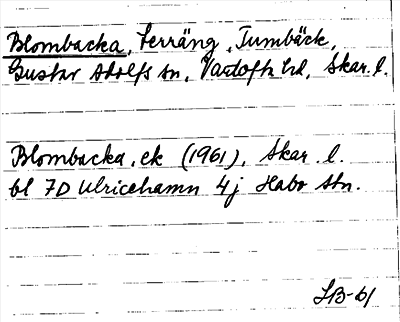 Blombacka, terräng, Tumbäck,
Gustav Adolfs sn, Vartofta hd, Skar. l.
Blombacka, ek (1961), Skar. l.
bl 7D Ulricehamn 4j Habo stn.
SB-61